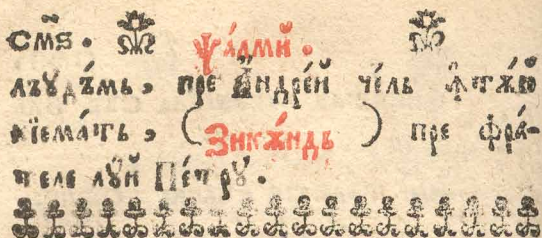 смѕ҃. ѱалмй.
лъꙋдъ́мь, пре А҆ндре́й че́ль ꙟ҆тѫ́ю
кїема́ть, ( Зикѫ́ндь ) пре фра́-
теле лꙋ́й Пе́трꙋ.